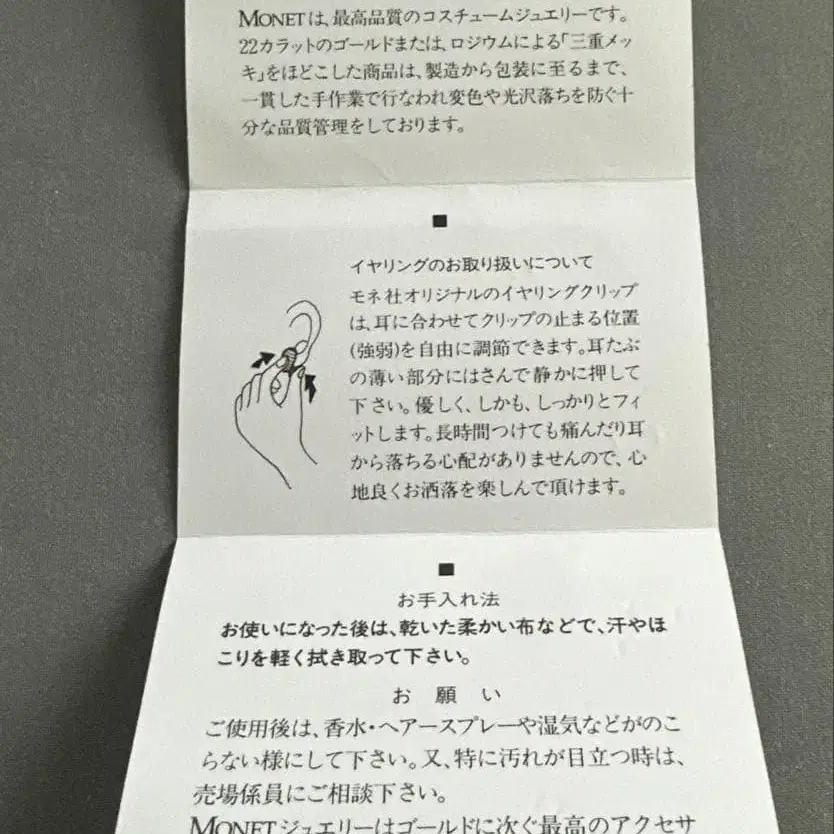 MONETは、最高品質のコスチュームジュエリーです。
22カラットのゴールドまたは、ロジウムによる「三重メッ
キ」をほどこした商品は、製造から包装に至るまで、
一貫した手作業で行なわれ変色や光沢落ちを防ぐ十
分な品質管理をしております。
■
イヤリングのお取り扱いについて
モネ社オリジナルのイヤリングクリップ
は、耳に合わせてクリップの止まる位置
(強弱)を自由に調節できます。耳たぶ
の薄い部分にはさんで静かに押して
下さい。優しく、しかも、しっかりとフィ
ットします。長時間つけても痛んだり耳
から落ちる心配がありませんので、心
地良くお洒落を楽しんで頂けます。
■
お手入れ法
お使いになった後は、乾いた柔かい布などで、汗やほ
こりを軽く拭き取って下さい。
お 願 い
ご使用後は、香水・ヘアースプレーや湿気などがのこ
らない様にして下さい。又、特に汚れが目立つ時は、
売場係員にご相談下さい。
MONETジュエリーはゴールドに次ぐ最高のアクセサ